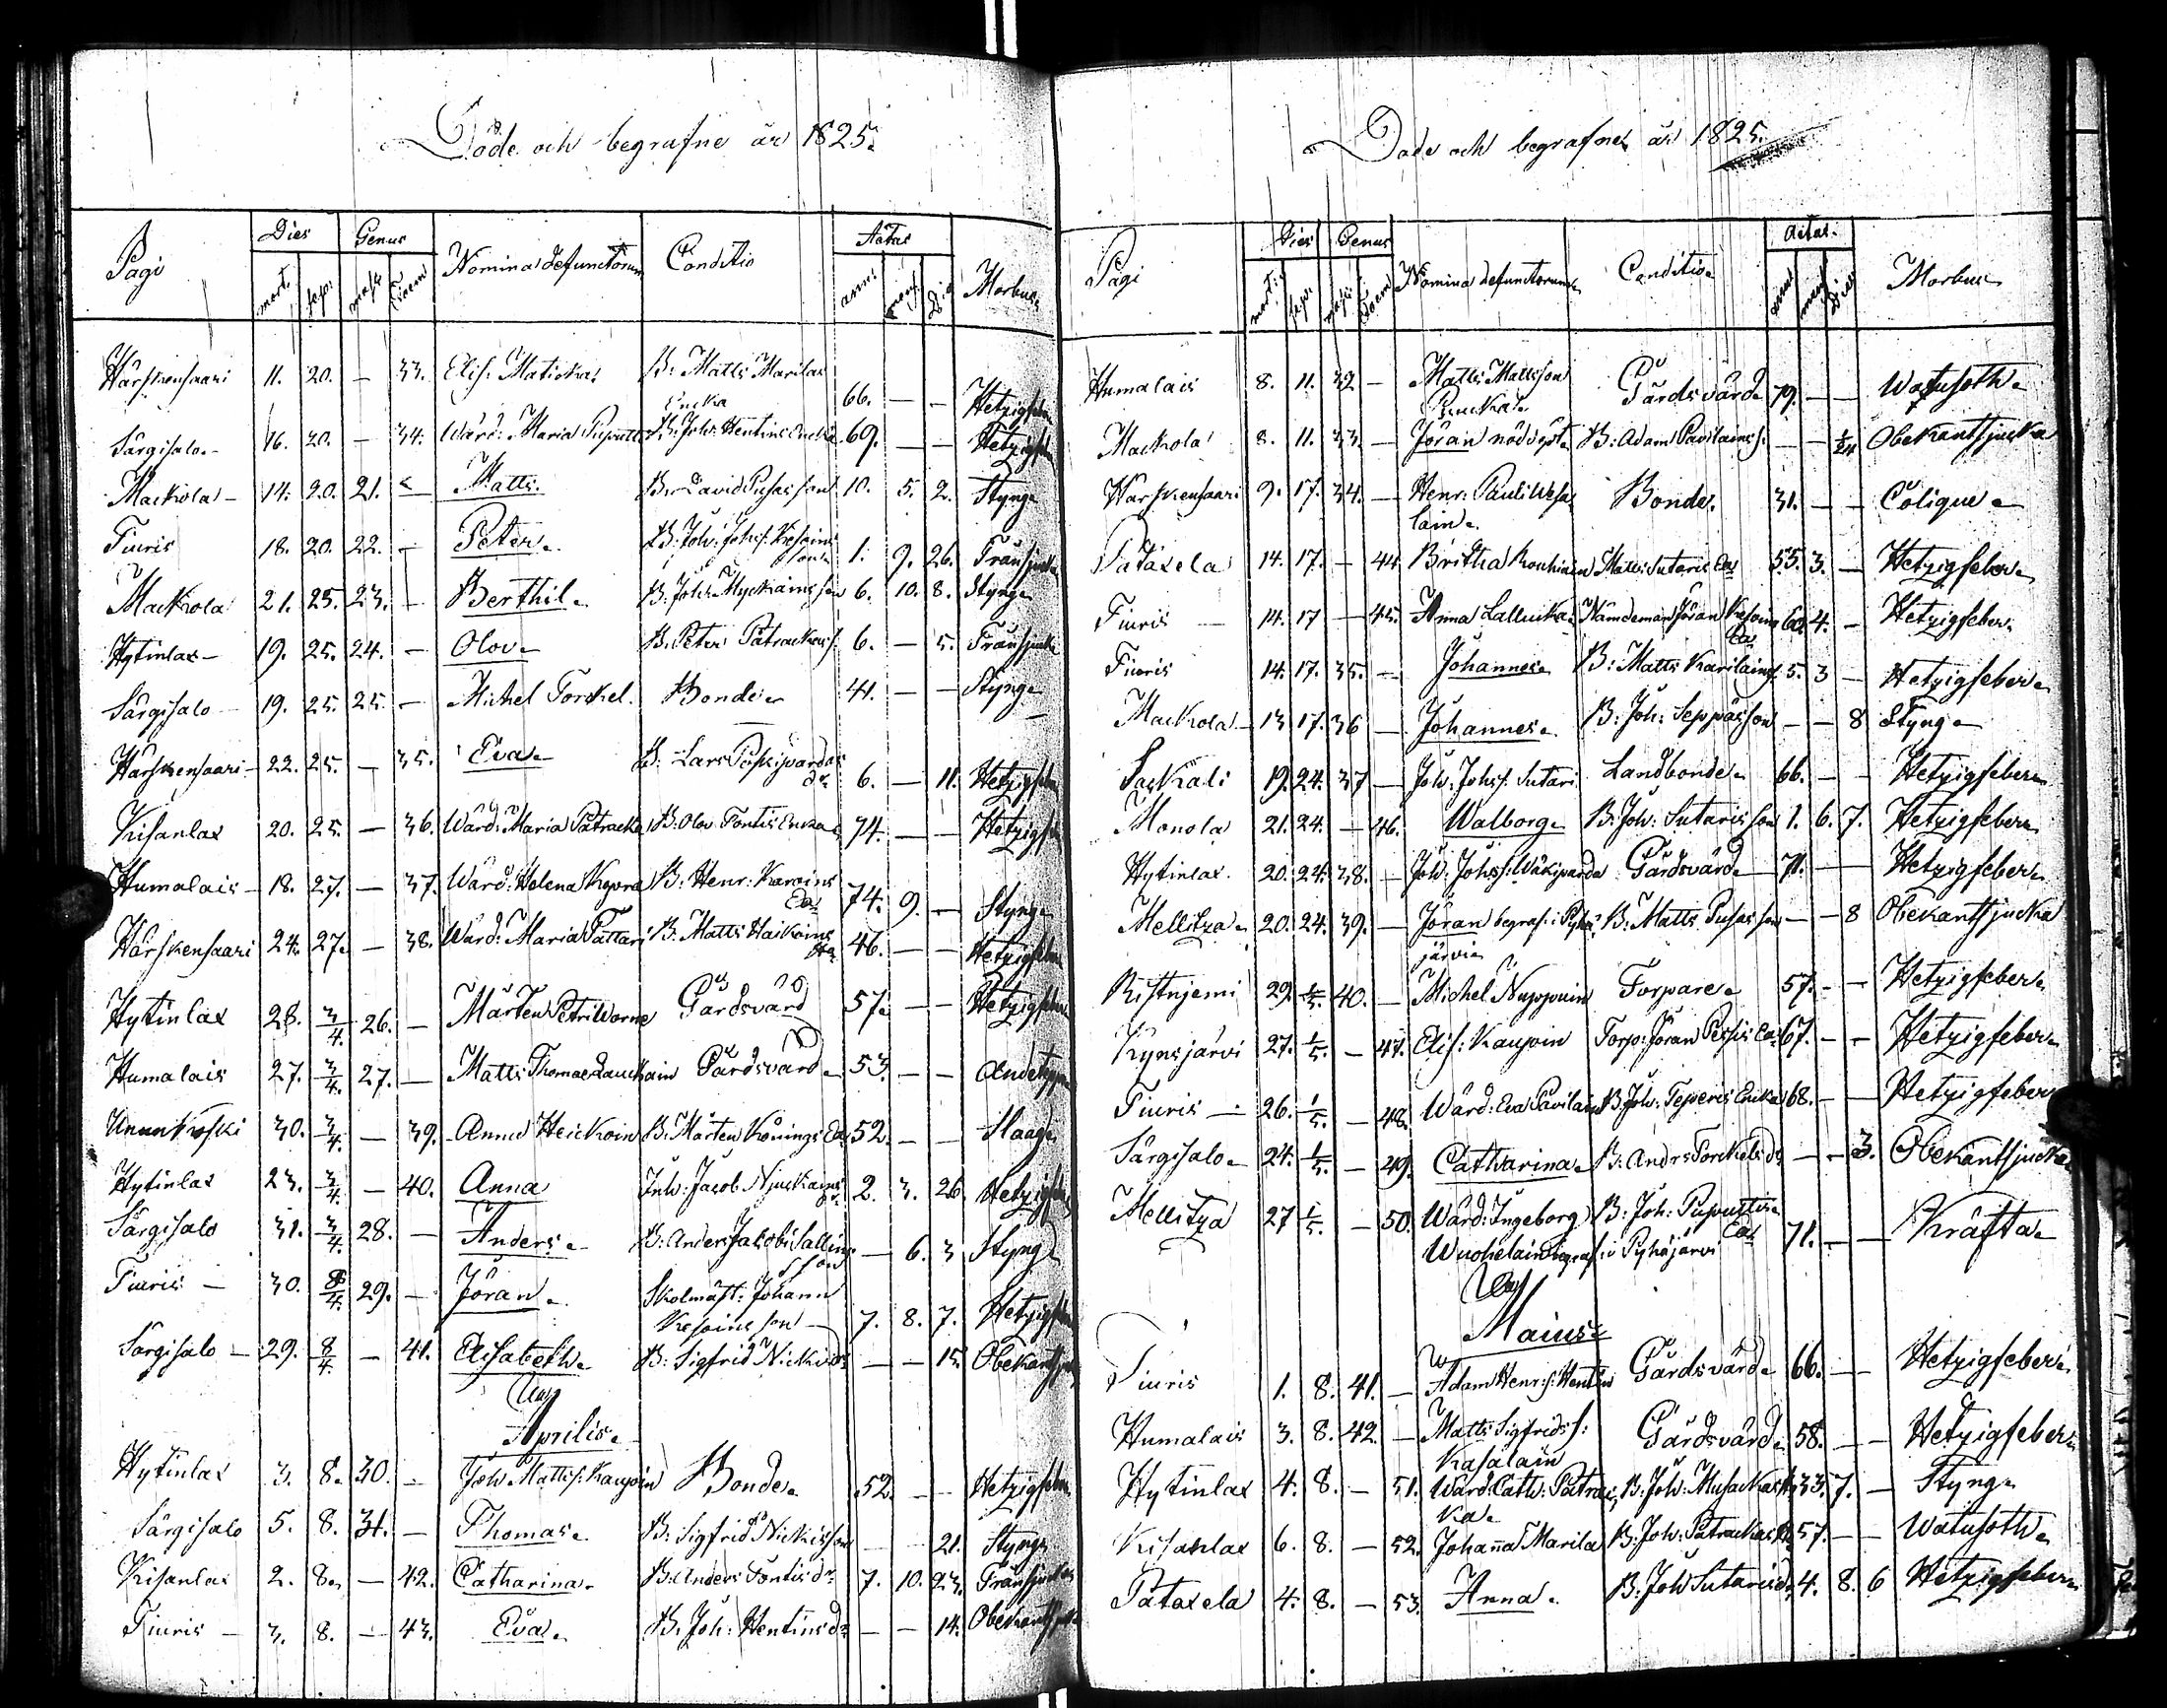 Döde och begrafne år 1825.
Pagi Dies Genus Nomina defunctorum Conditio Aetas Morbus
mort. sep. mask. foem. anni. mens. Die
Härskensaari 11. 20. — 33. Elis: Maticka. B: Matts Marilas
Encka 66. — — Hetzigfeber
Särgisalo. 16. 20. — 34. Wärd: Maria B: Joh: Hentins Encka 69. — — Hetzigfeber
Mackola — 14. 20. 21. — Matts. B. David Pusas son 10. 5. 2. Styng.
Tiuris 18. 20. 22. — Peter. B: Joh: Johs: Kesoins
son 1. 9. 26. Transjucka
Mackola 21. 25. 23. — Berthil. B: Joh: Myckäins son 6. 10. 8. Styng.
Hytinlax — 19. 25. 24. — Olov. B. Peter Patrackas s. 6. — 5. Transjucka
Särgisalo — 19. 25. 25. — Michel Torckel. Bonde. 41. — — Styng.
Härskensaari — 22. 25. — 35. Eva. B: Lars
dr 6. — 11. Hetzigfeber
Kisanlax 20. 25. — 36. Wärd: Maria Patracka B: Olov Tontis Encka 74. — — Hetzigfeber
Humalais — 18. 27. — 37. Wärd: Helena B: Henr: Karoins
Ea 74. 9. — Styng.
Härskensaari 24. 27. — 38. Wärd: Maria Tattari B. Matts Haikoins
46. — — Hetzigfeber
Hytinlax 28. 3/4. 26. — Mårten Petri Gårdsvärd 57. — — Hetzigfeber
Humalais 27. 3/4. 27. — Matts Thomae Lauckain Gårdsvärd. 53. — —
30. 3/4. — 39. Anna Heickoin B. Mårten Könings Ea 52. — —
Hytinlax 23. 3/4. — 40. Anna Inh: Jacob
dr 2. 3. 26. Hetzigfeber
Särgisalo 31. 3/4. 28. — Anders. B: Anders Jakobs Sallins
son — 6. 3 Styng.
Tiuris — 30. 8/4. 29. — Jöran. Skolmäst: Johann
Kesoins son — 7. 8. 7. Hetzigfeber
Särgisalo — 29. 8/4. — 41. Elisabeth. B: Sigfrid Nickis dr — — 15. Obekantsjucka
Aprilis.
Hytinlax 3. 8. 30. — Joh: Mattss: Kaupoin Bonde. 52. — — Hetzigfeber
Särgisalo 5. 8. 31. — Thomas. B: Sigfrid Nickis son — — 21. Styng.
Kisanlax 2. 8. — 42. Catharina. B: Anders Tontis dr 7. 10. 23. Transjucka
Tiuris — 3. 8. — 43. Eva. B. Joh: Hentins dr — — 14. Obekantsjucka
Döde och begrafne år 1825.
Pagi Dies Genus Nomina defunctorum Conditio Aetas. Morbus
mort. sep. mask. foem. anni mens Dies
Humalais 8. 11. 32 — Matts Mattsson
Gårdsvärd 79. — — Watusoth.
Mackola 8. 11. 33. — Jöran nöddöpt. B: Adam Pavilains s. — — 1/24 Obekantsjucka
Härskensaari 9. 17. 34. — Henr: Pauli Wesa-
lain. Bonde. 31. — — Colique.
Pataxela 14. 17. — 44. Britha Rouhiain Matts Sutaris Ea 55. 3. — Hetzigfeber.
Tiuris — 14. 17 — 45. Anna Lallucka. Nämdeman Jöran Kesoins
Ea 60. 4. — Hetzigfeber.
Tiuris 14. 17. 35. — Johannes. B: Matts Karilains s. 5. 3 — Hetzigfeber.
Mackola — 13 17. 36 — Johannes. B: Joh: Seppäs son — — 8 Styng.
19. 24. 37 — Joh: Johss: Sutari Landbonde. 66. — — Hetzigfeber.
Monola 21. 24. — 46. Walborg. B: Joh: Sutaris son 1. 6. 7. Hetzigfeber.
Hytinlax. 20. 24. 38. — Joh: Johss: Gårdsvärd 71. — — Hetzigfeber.
Mellitza. 20. 24. 39. — Jöran begraf. i Pyhä-
järvi. B: Matts Pusas son — — 8 Obekantsjucka
Ristnjemi 29. 1/5. 40. — Michel Nuppoin Torpare. 57. — — Hetzigfeber.
Kynsjärvi 27. 1/5. — 47. Elis: Kaupoin Torp: Jöran Pessis Ea 67. — — Hetzigfeber.
Tiuris — 26. 1/5. — 48. Wärd: Eva Pavilain B: Joh: Teperis Encka 68. — — Hetzigfeber.
Särgisalo. 24. 1/5. — 49. Catharina. B: Anders Torckels dr — — 3. Obekantsjucka
Mellitza 27 1/5. — 50. Wärd: Ingeborg B: Joh: Puputtis
Wuohelain begraf. i Pyhäjärvi Ea 71. — — Kräfta.
Maius.
Tiuris 1. 8. 41. — Adam Henr:s: Hentin Gårdsvärd. 66. — — Hetzigfeber.
Humalais 3. 8. 42. — Matts Sigfrids s:
Kasalain Gårdsvärd. 58. — — Hetzigfeber.
Hytinlax 4. 8. — 51. Wärd: Cath: Patrac-
ka. B: Joh: 33. 7. — Styng.
Kisanlax 6. 8. — 52. Johanna Marila B: Joh: Patrackas 57. — — Watusoth.
Pataxela 4. 8. — 53. Anna. B: Joh Sutaris dr 4. 8. 6 Hetzigfeber.